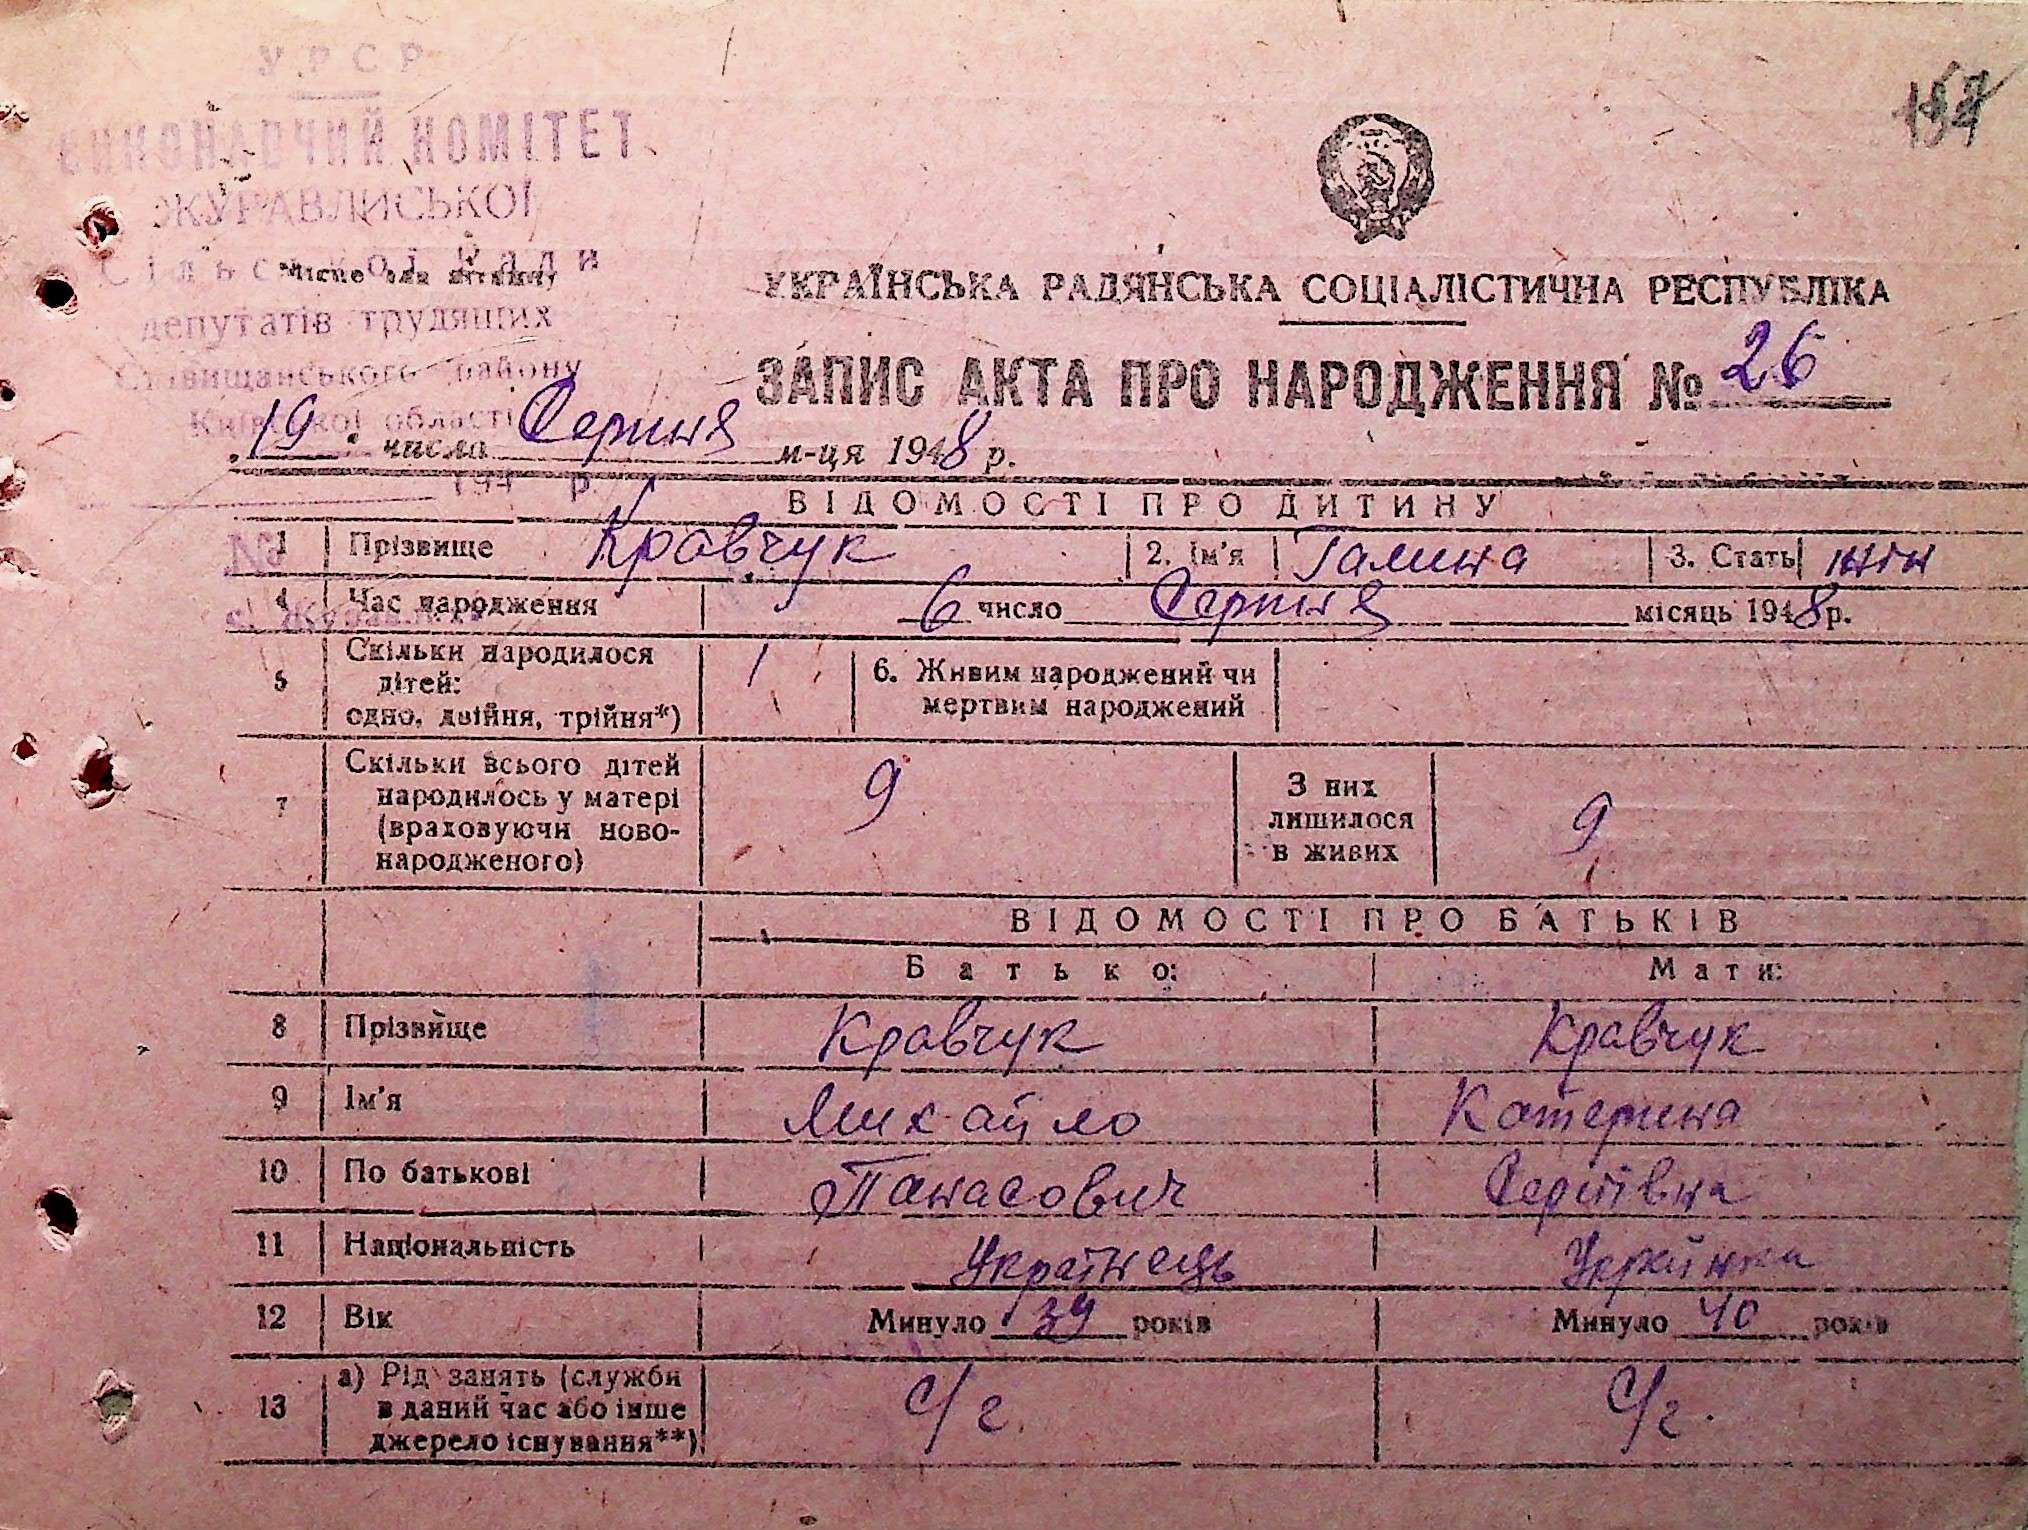 УРСР
ВИКОНАВЧИЙ КОМІТЕТ
ЖУРАВЛИСЬКОЇ
Сільської Ради
Місце для штампу
депутатів трудящих
Ставищанського району
Київської області
194 р.
№
с. Журавлиха
УКРАЇНСЬКА РАДЯНСЬКА СОЦІАЛІСТИЧНА РЕСПУБЛІКА
ЗАПИС АКТА ПРО НАРОДЖЕННЯ № 26
„19“ числа Серпня м-ця 1948 р.
ВІДОМОСТІ ПРО ДИТИНУ
1 Прізвище Кравчук 2. Ім'я Галина 3. Стать жін
4 Час народження 6 число Серпня місяць 1948 р.
5 Скільки народилося дітей: одно, двійня, трійня*) 1 6. Живим народжений чи мертвим народжений
7 Скільки всього дітей народилось у матері (враховуючи новонародженого) 9 З них лишилося в живих 9
ВІДОМОСТІ ПРО БАТЬКІВ
Батько: Мати:
8 Прізвище Кравчук Кравчук
9 Ім'я Михайло Катерина
10 По батькові Панасович Сергіївна
11 Національність Українець Українка
12 Вік Минуло 39 років Минуло 40 років
13 а) Рід занять (служби в даний час або інше джерело існування**) С/г. С/г.